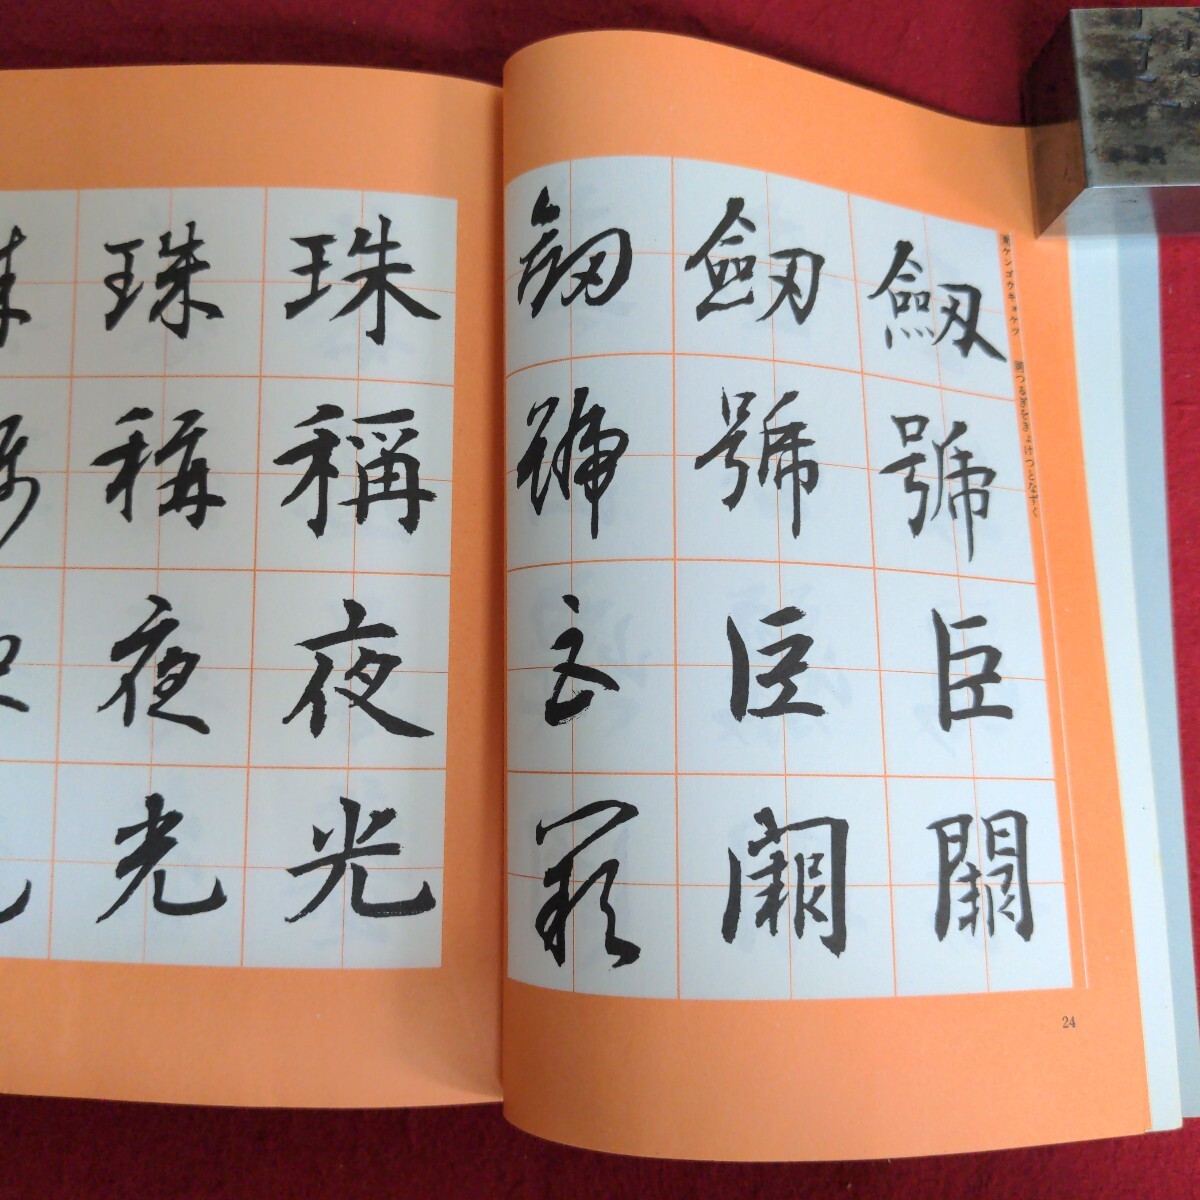 ケンゴウキョケツ　つるぎをきょけつとなずく
劒號巨闕
劒號巨闕
劒號巨闕
24
珠稱夜光
珠稱夜光